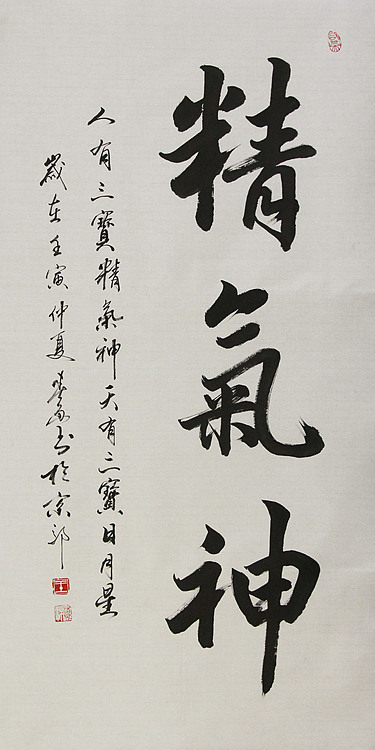 精氣神
人有三寶精氣神天有三寶日月星
歲在壬寅仲夏
書於京郊